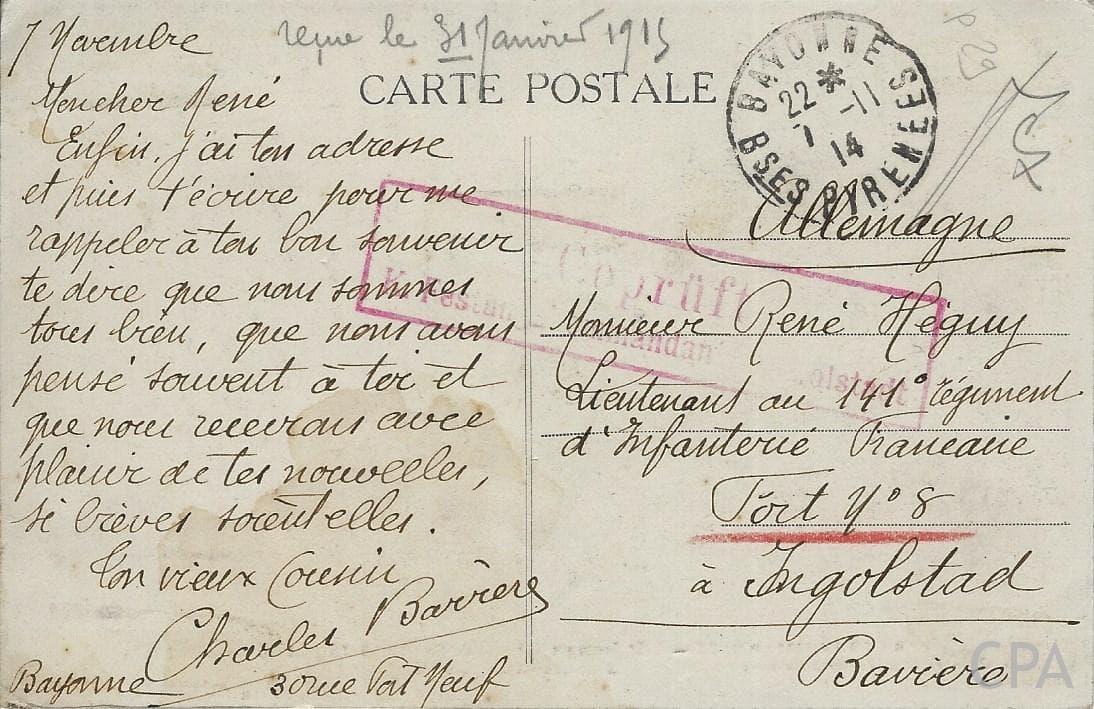 7 Novembre
reçue le 31 Janvier 1915
CARTE POSTALE
Mon cher René
Enfin, j'ai ton adresse
et puis t'écrire pour me
rappeler à ton bon souvenir
te dire que nous sommes
tous bien, que nous avons
pensé souvent à toi et
que nous recevrons avec
plaisir de tes nouvelles,
si brèves soient elles.
Ton vieux Cousin
Charles Barrière
Bayonne 30 rue Port Neuf
BAYONNE
22 * 
7 -11
14
BSES PYRENEES
P 29
Geprüft
Allemagne
Monsieur René Héguy
Lieutenant au 141° régiment
d'Infanterie Francaise
Fort N° 8
à Ingolstad
Bavière
CPA